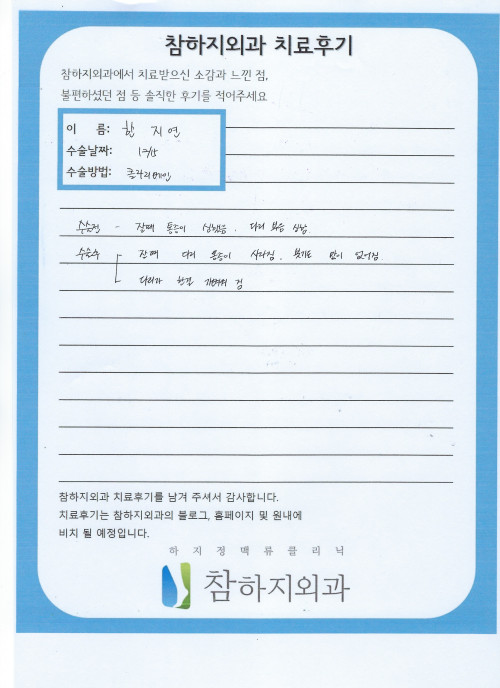 참하지외과 치료후기
참하지외과에서 치료받으신 소감과 느낀 점,
불편하셨던 점 등 솔직한 후기를 적어주세요
이 름: 함 지 연
수술날짜: 12/15
수술방법: 클라리베인
수술전 - 잘때 통증이 심했음. 다리 붓음 심함
수술후 잔 때 다리 통증이 사라짐. 붓기도 많이 없어짐
다리가 한결 가벼워 짐
참하지외과 치료후기를 남겨 주셔서 감사합니다.
치료후기는 참하지외과의 블로그, 홈페이지 및 원내에
비치 될 예정입니다.
하지정맥류클리닉
참하지외과